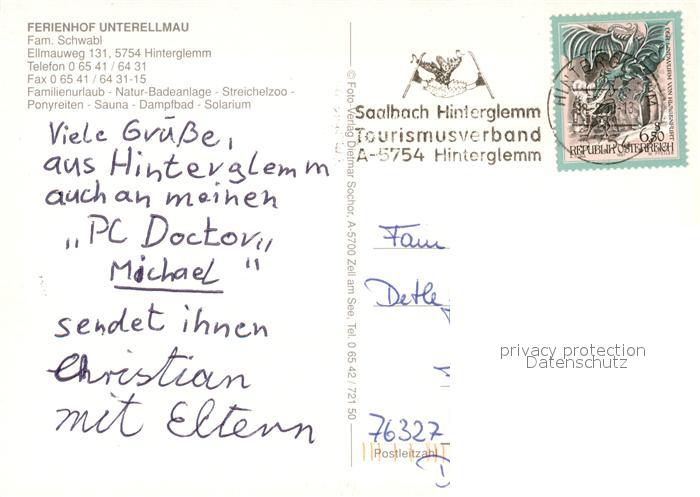 FERIENHOF UNTERELLMAU
Fam. Schwabl
Ellmauweg 131, 5754 Hinterglemm
Telefon 0 65 41 / 64 31
Fax 0 65 41 / 64 31-15
Familienurlaub - Natur-Badeanlage - Streichelzoo -
Ponyreiten - Sauna - Dampfbad - Solarium
Viele Grüße,
aus Hinterglemm
auch an meinen
„PC Doctor„
Michael "
sendet ihnen
Christian
mit Eltern
© Foto-Verlag Dietmar Sochor, A-5700 Zell am See, Tel. 0 65 42 / 721 50
Saalbach Hinterglemm
Tourismusverband
A-5754 Hinterglemm
6,50
REPUBLIK ÖSTERREICH
Fam
Detle
76327
Postleitzahl
privacy protection
Datenschutz